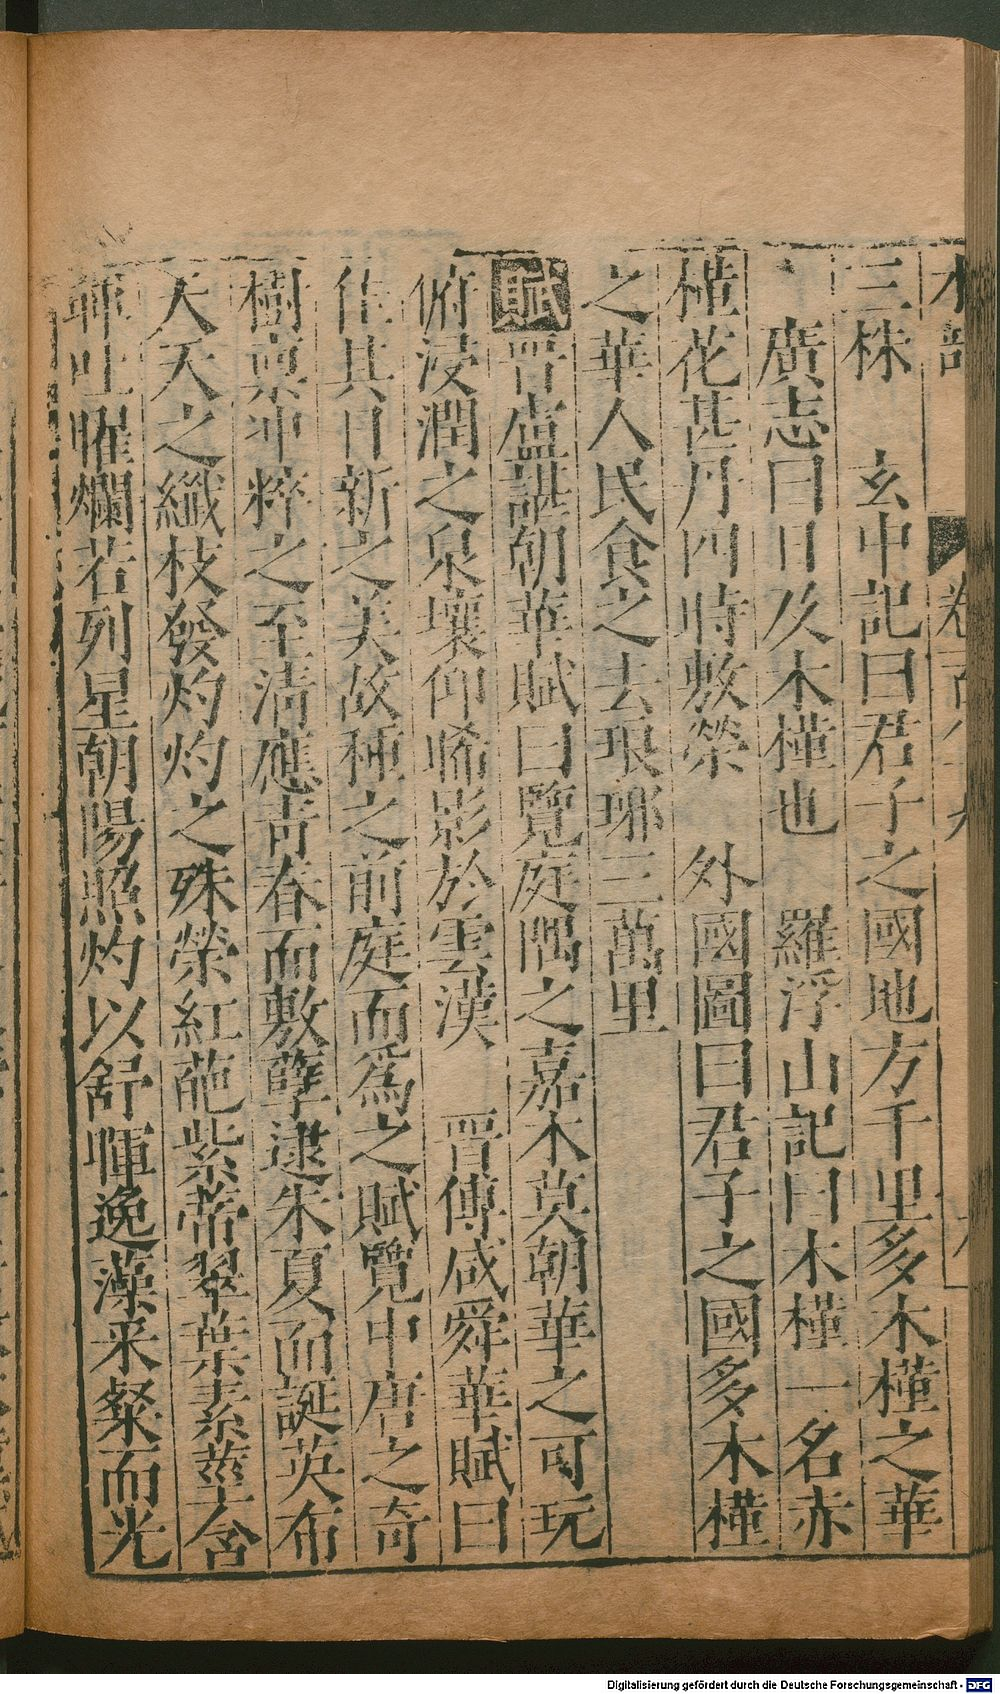 木部 卷
三株 玄中記曰君子之國地方千里多木槿之華
廣志曰日及木槿也 羅浮山記曰木槿一名赤
槿花甚丹四時敷榮 外國圖曰君子之國多木槿
之華人民食之去琅琊三萬里
賦晉盧諶朝華賦曰覽庭隅之嘉木莫朝華之可玩
俯浸潤之泉壤仰晞影於雲漢 晉傅咸舜華賦曰
佳其日新之美故種之前庭而爲之賦覽中唐之奇
樹稟冲粹之至清應青春而敷蘖逮朱夏而誕英布
夭夭之纖枝發灼灼之殊榮紅葩紫蔕翠葉素莖含
暉吐曜爛若列星朝陽照灼以舒暉逸藻采粲而光
Digitalisierung gefördert durch die Deutsche Forschungsgemeinschaft - DFG